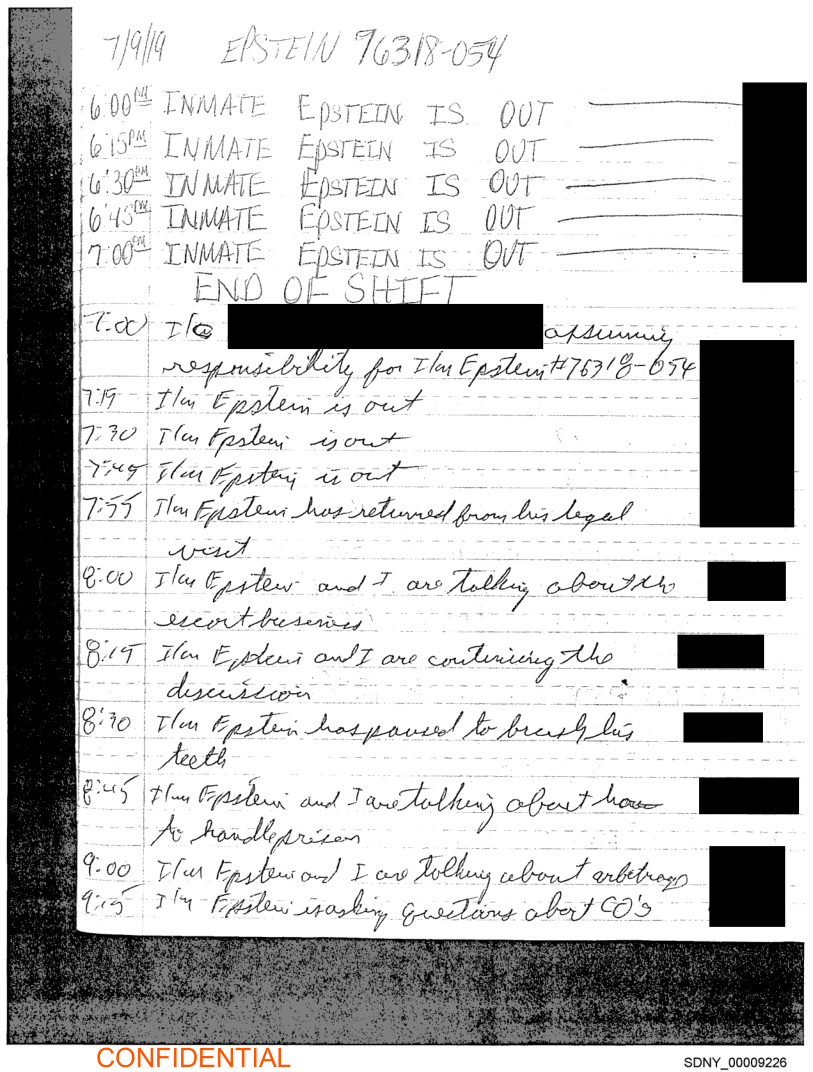 7/9/19 EPSTEIN 76318-054
6:00PM INMATE EPSTEIN IS OUT
6:15PM INMATE EPSTEIN IS OUT
6:30PM INMATE EPSTEIN IS OUT
6:45PM INMATE EPSTEIN IS OUT
7:00PM INMATE EPSTEIN IS OUT
END OF SHIFT
7:00 I/C assuming
responsibility for I/m Epstein #76318-054
7:15 I/m Epstein is out
7:30 I/m Epstein is out
7:45 I/m Epstein is out
7:55 I/m Epstein has returned from his legal
visit
8:00 I/m Epstein and I are talking about the
escort business
8:15 I/m Epstein and I are continuing the
discussion
8:30 I/m Epstein has paused to brush his
teeth
8:45 I/m Epstein and I are talking about how
to handle prison
9:00 I/m Epstein and I are talking about arbitrage
9:15 I/m Epstein is asking questions abort CO's
CONFIDENTIAL
SDNY_00009226